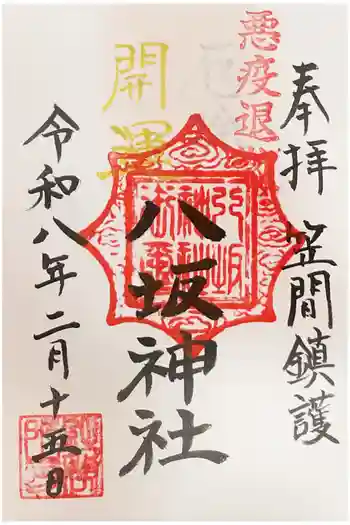 奉拝 笠間鎮護
悪疫退
開運
八坂神社
令和八年二月十五日